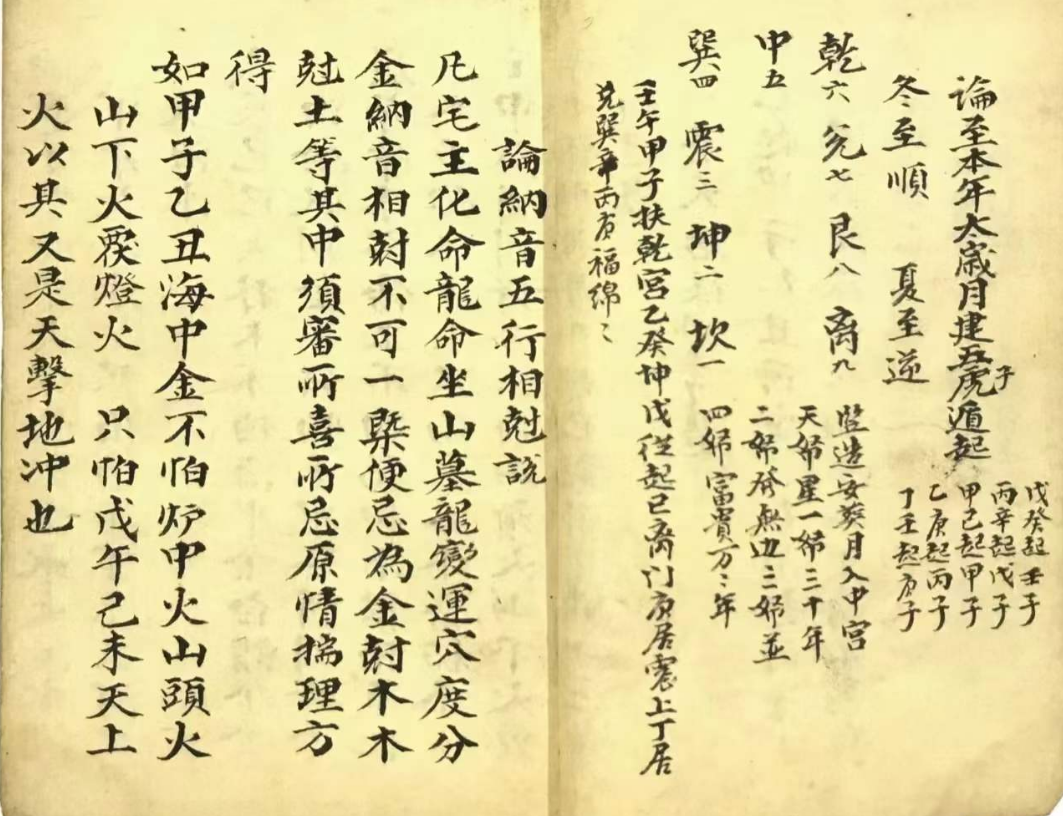 論至本年太歲月建五虎遁起
子
戊癸起壬子
丙辛起戊子
甲己起甲子
乙庚起丙子
丁壬起庚子
冬至順 夏至逆
乾六 兌七 艮八 离九
竖造安葵月入中宮
天娣星一娣三十年
中五
二娣發無边三娣並
巽四 震三 坤二 坎一
四娣富貴万〻年
壬午甲子扶乾宮乙癸坤戊從起巳离门庚居震上丁居
兌巽辛丙艮福綿〻
論納音五行相尅説
凡宅主化命龍命坐山墓龍變運穴度分
金納音相尅不可一槩便忌為金尅木木
尅土等其中須審所喜所忌原情揣理方
得
如甲子乙丑海中金不怕炉中火山頭火
山下火覆燈火 只怕戊午己未天上
火以其又是天擊地冲也